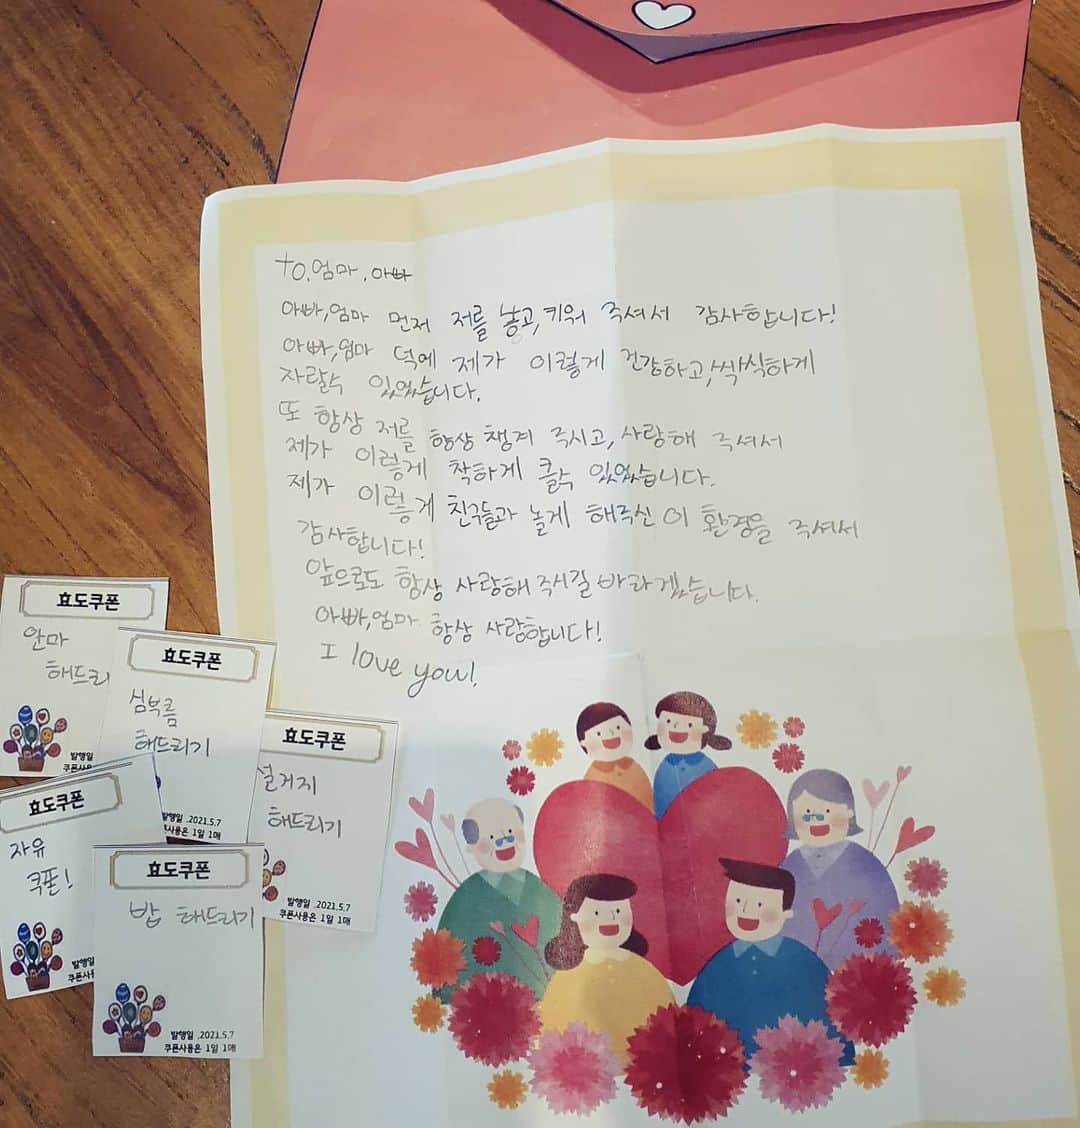 to. 엄마, 아빠
아빠, 엄마 먼저 저를 놓고, 키워 주셔서 감사합니다!
아빠, 엄마 덕에 제가 이렇게 건강하고, 씩씩하게
자랄수 있었습니다.
또 항상 저를 항상 챙겨 주시고, 사랑해 주셔서
제가 이렇게 착하게 클수 있었습니다.
제가 이렇게 친구들과 놀게 해주신 이 환경을 주셔서
감사합니다!
앞으로도 항상 사랑해 주시길 바라겠습니다.
아빠, 엄마 항상 사랑합니다!
I love you!
효도쿠폰
안마
해드리
발행일
쿠폰사용
효도쿠폰
심부름
해드리기
발행일 .2021.5.7
쿠폰사용은 1일 1매
효도쿠폰
설거지
해드리기
발행일 .2021.5.7
쿠폰사용은 1일 1매
효도쿠폰
자유
쿠폰!
발행일
쿠폰사용
효도쿠폰
밥 해드리기
발행일 .2021.5.7
쿠폰사용은 1일 1매